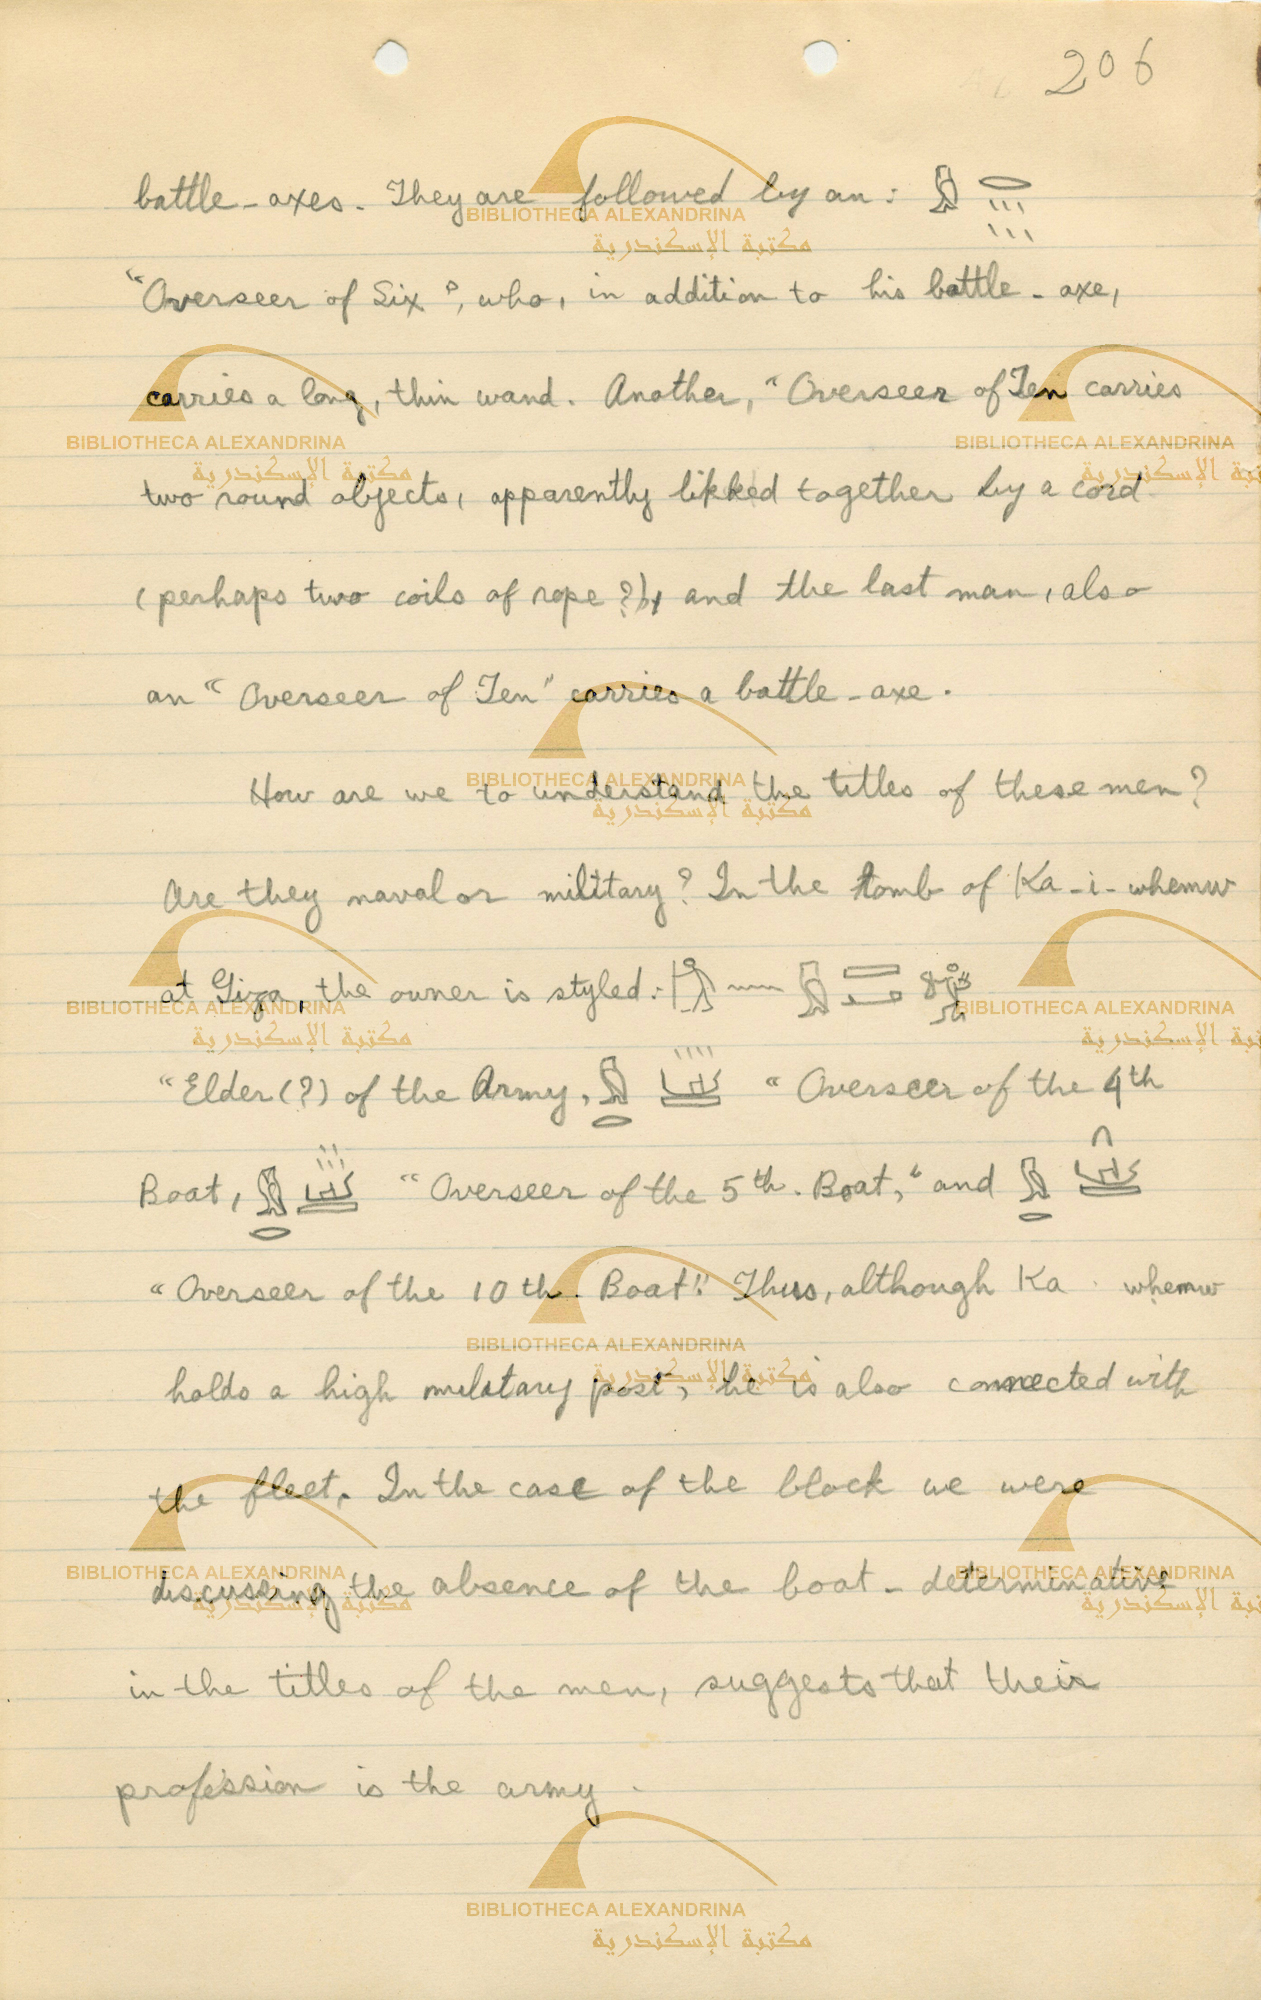 206
battle-axes. They are followed by an: 𓅓 𓂋 ׀׀׀ ׀׀׀
"Overseer of Six", who, in addition to his battle-axe,
carries a long, thin wand. Another, "Overseer of Ten carries
two round objects, apparently likked together by a cord
(perhaps two coils of rope?), and the last man, also
an "Overseer of Ten" carries a battle-axe.
How are we to understand the titles of these men?
Are they naval or military? In the tomb of Ka-i-whemw
at Giza, the owner is styled:
"Elder(?) of the Army, "Overseer of the 4th
Boat, "Overseer of the 5th. Boat," and
"Overseer of the 10th. Boat". Thus, although Ka whemw
holds a high military post, he is also connected with
the fleet. In the case of the block we were
discussing the absence of the boat-determinative
in the titles of the men, suggests that their
profession is the army.
BIBLIOTHECA ALEXANDRINA
مكتبة الإسكندرية